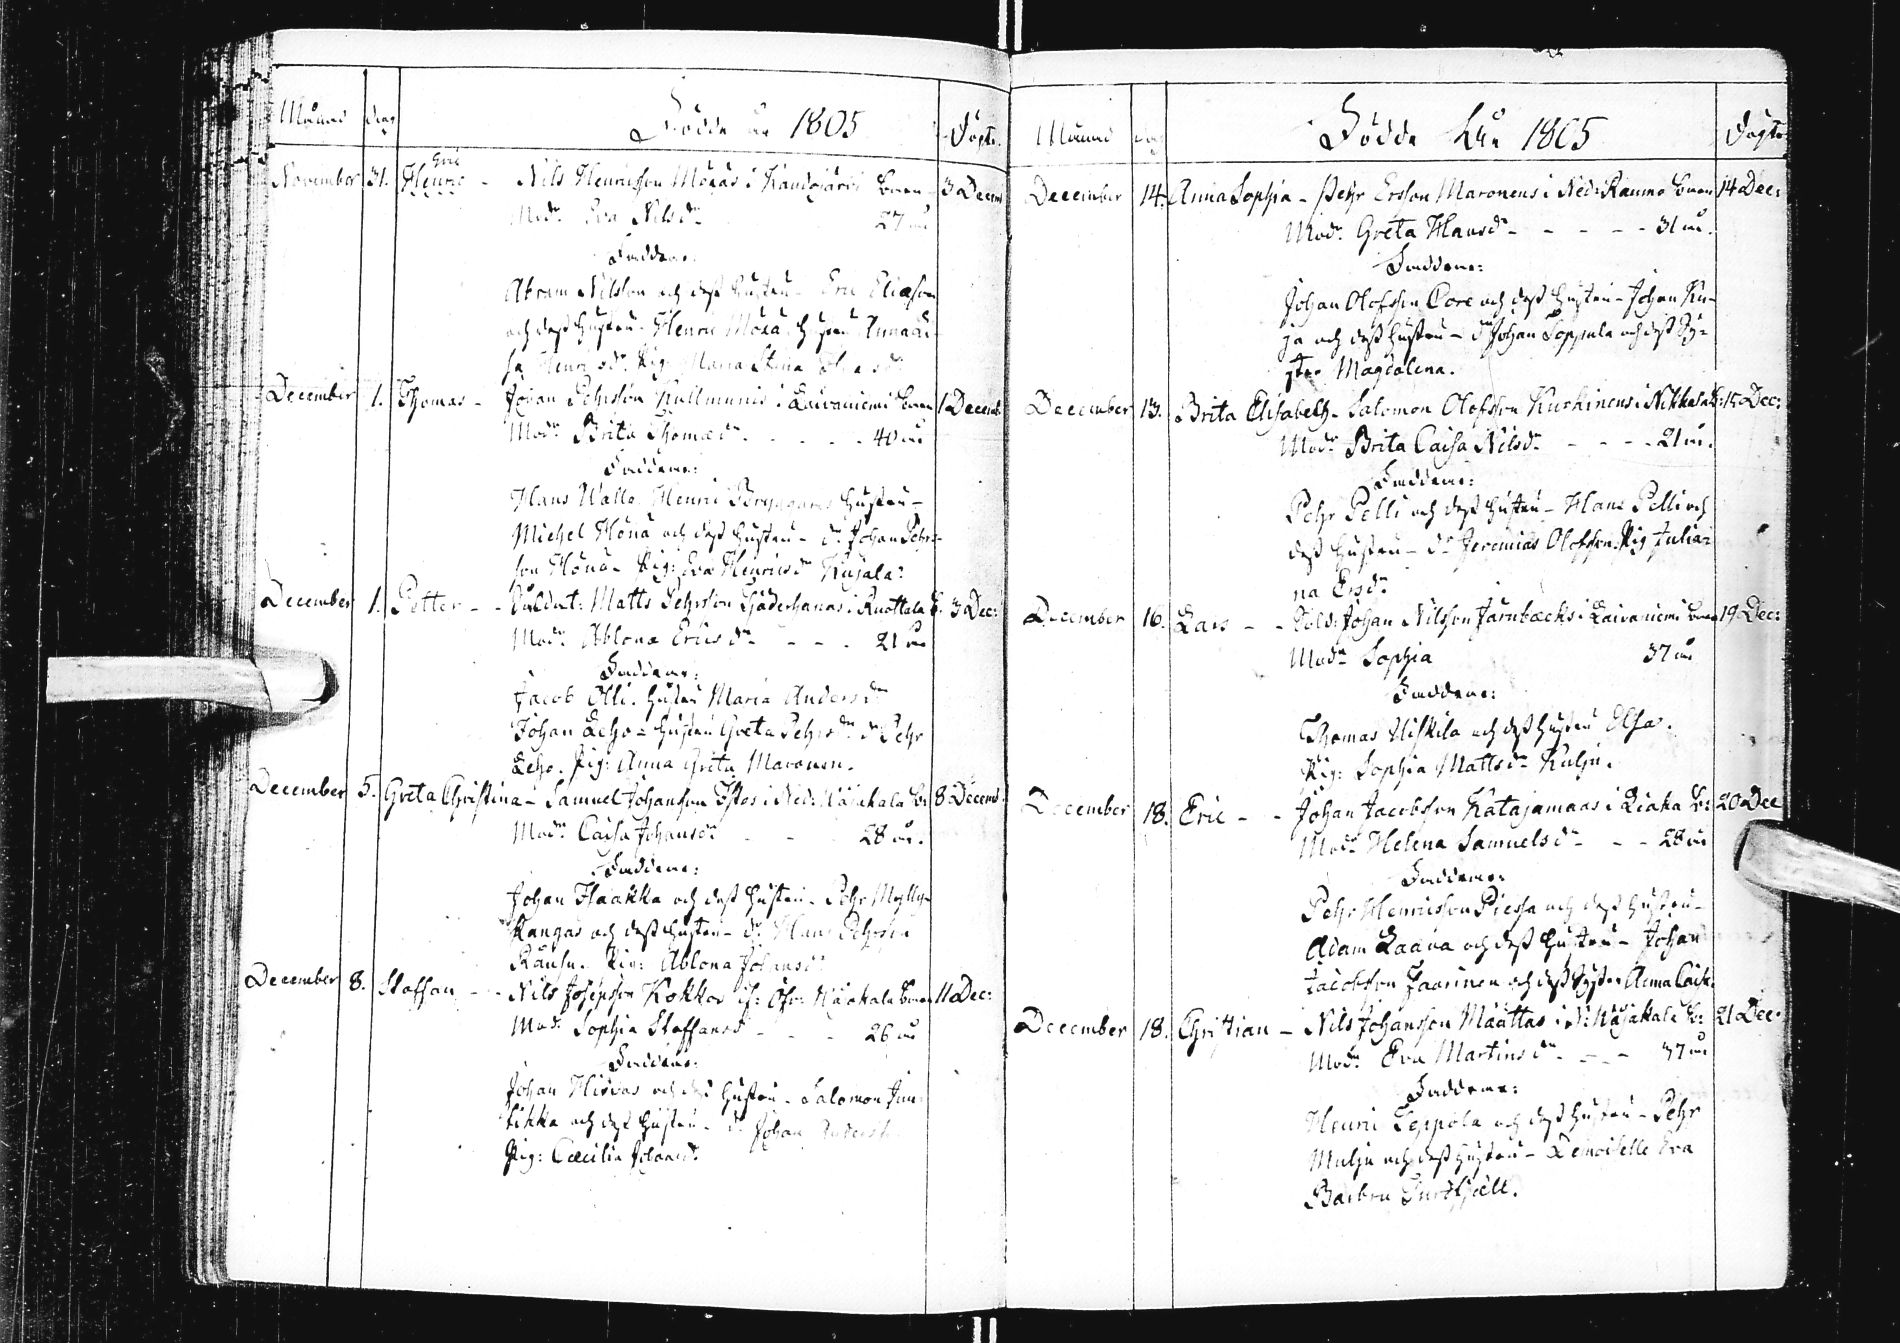 Månad dag Födde År 1805 Döpte.
November 31. Eric
Henric - Nils Henricsson Mörås i Kandojärvi Barn 3 Decem
Modr Eva Nilsdr 27 år
Faddrar:
Abram Nilsson och dess hustru - Eric Eliasson
och dess hustru. Henric Mörå hustru Annacai-
sa Henricsdr Pig: Maria Stina
December 1. Thomas - Johan Pehrsson Kullmunis i Laivaniemi Barn 1 Decemb:
Modr Brita Thomædr - - - - 40 år
Faddrar:
Hans Walle. Henric hustru -
Michel Höna och dess hustru - dr Johan Pehrs-
son Höna - Pig: Eva Henricsdr Kujala:
December 1. Petter - - Soldat: Matts Pehrsson Söderhanas i Ruottala B. 3 Dec:
Modr Ablona Ericsdr - - - 21 år
Faddrar:
Jacob Olli. hustru Maria Andersdr
Johan Leho - hustru Greta Pehrsdr dr Pehr
Leho. Pig: Anna Greta Maronen.
December 5. Greta Christina - Samuel Johansson Istos i Ned: Wojakala B: 8 Decemb.
Modr Caisa Johansdr - - 28 år.
Faddrar:
Johan Haakka och dess hustru - Pehr Mylly-
kangas och dess hustru - dr Hans Pehrsson
Pig: Ablona Johansdr
December 8. Staffan - - Nils Josepsson Kokkos i Öfr: Wojakala Barn 11 Dec:
Modr Sophia Staffansd - - - 26 år
Faddrar:
Johan Hirvas och dess hustru - Salomon Jun-
tikka och dess hustru - dr Johan
Pig: Cæcilia Johansd.
Månad dag Födde År 1805 Döpte
December 14. Anna Sophia - Pehr Ersson Maronens i Ned: Raumo Barn 14 Dec:
Modr Greta Hansdr - - - - - 31 år.
Faddrar:
Johan Olofsson Core och dess hustru - Johan Ku-
ja och dess hustru - dr Johan Leppala och dess Sy-
ster Magdalena.
December 13. Brita Elisabeth - Salomon Olofsson Kurkinens i Nikkala B: 15 Dec:
Modr Brita Caisa Nilsdr - - - - 21 år.
Faddrar:
Pehr Pelli och dess hustru - Hans Pelli och
dess hustru - dr Jeremias Olofsson. Pig Julia-
na Ersdr
December 16. Lars - - Sold: Johan Nilsson Järnbäcks i Laivaniemi Barn 19 Dec:
Modr Sophia 37 år
Faddrar:
Thomas Niskila och dess hustru Elsa.
Pig: Sophia Mattsdr Kulju.
December 18. Eric - - Johan Jacobsson Katajamaas i Liaka B: 20 Dec
Modr Helena Samuelsdr - - - 28 år
Faddrar:
Pehr Henricsson Piessa och dess hustru -
Adam Laava och dess hustru - Johan
Jacobsson Jaarinen och dess Syster Anna Caisa.
December 18. Christian - Nils Johansson Määttas i N: Wojakala B: 21 Dec.
Modr Eva Martinsdr - - - 37 år
Faddrar:
Henric Leppola och dess hustru - Pehr
Mulju och dess hustru - Demoiselle Eva
Barbru